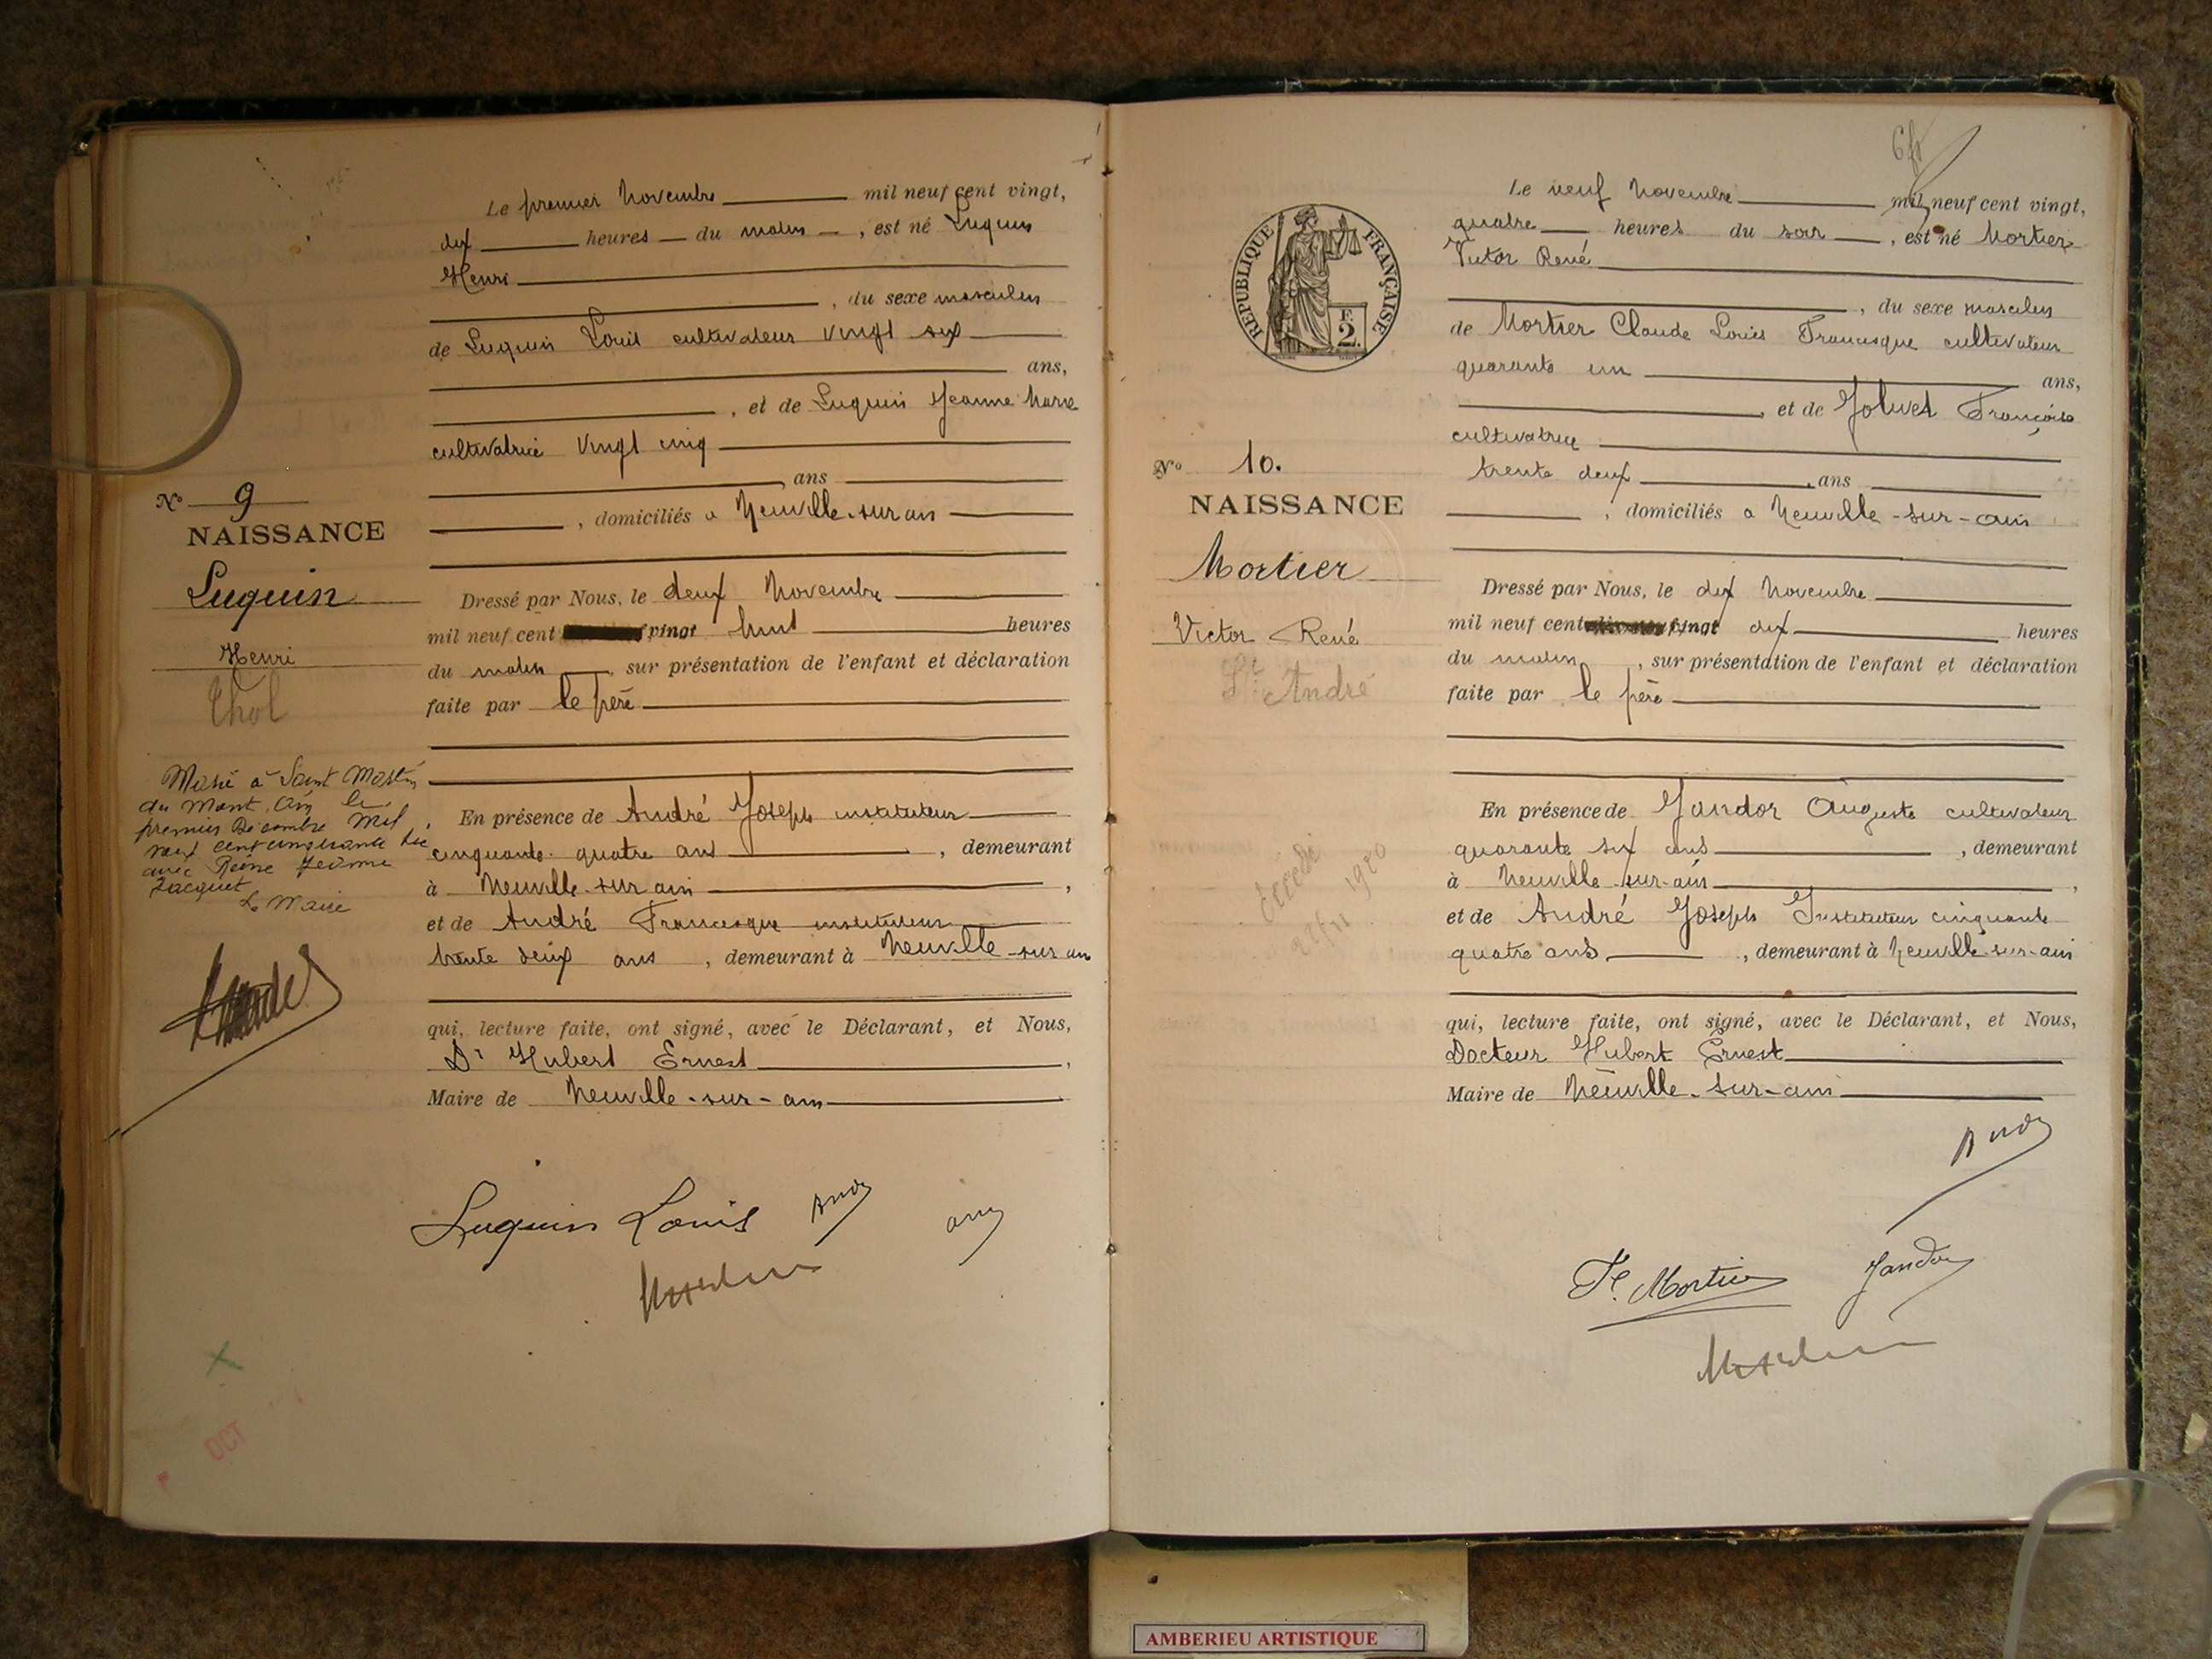 Le premier Novembre mil neuf cent vingt,
dix heures du matin, est né Luquin
Henri
, du sexe masculin
de Luquin Louis cultivateur vingt six
ans,
, et de Luquin Jeanne Marie
cultivatrice vingt cinq
ans
, domiciliés à Neuville-sur ain
N° 9
NAISSANCE
Luquin
Henri
Thol
Dressé par Nous, le deux Novembre
mil neuf cent vingt huit heures
du matin, sur présentation de l'enfant et déclaration
faite par le père
Marié à Saint Martin
du Mont, Ain le
premier Décembre mil
neuf cent cinquante
avec Reine Jeanne
Jacquet
Le Maire
En présence de André Joseph instituteur
cinquante quatre ans, demeurant
à Neuville-sur ain,
et de André Francisque instituteur
trente deux ans, demeurant à Neuville-sur ain
qui, lecture faite, ont signé, avec le Déclarant, et Nous,
Dr Hubert Ernest,
Maire de Neuville-sur-ain
Luquin Louis
OCT
REPUBLIQUE FRANÇAISE
F.
2.
Le neuf Novembre mil neuf cent vingt,
quatre heures du soir, est né Mortier
Victor René
, du sexe masculin
de Mortier Claude Louis Francisque cultivateur
quarante un ans,
, et de Jolivet Françoise
cultivatrice
trente deux, ans
, domiciliés à Neuville-sur-ain
N° 10.
NAISSANCE
Mortier
Victor René
St André
Dressé par Nous, le dix Novembre
mil neuf cent vingt dix heures
du matin, sur présentation de l'enfant et déclaration
faite par le père
En présence de Jandor Auguste cultivateur
quarante six ans, demeurant
à Neuville-sur-ain,
et de André Joseph Instituteur cinquante
quatre ans, demeurant à Neuville-sur-ain
qui, lecture faite, ont signé, avec le Déclarant, et Nous,
Docteur Hubert Ernest
Maire de Neuville-sur-ain
Fe. Mortier
Jandor
AMBERIEU ARTISTIQUE